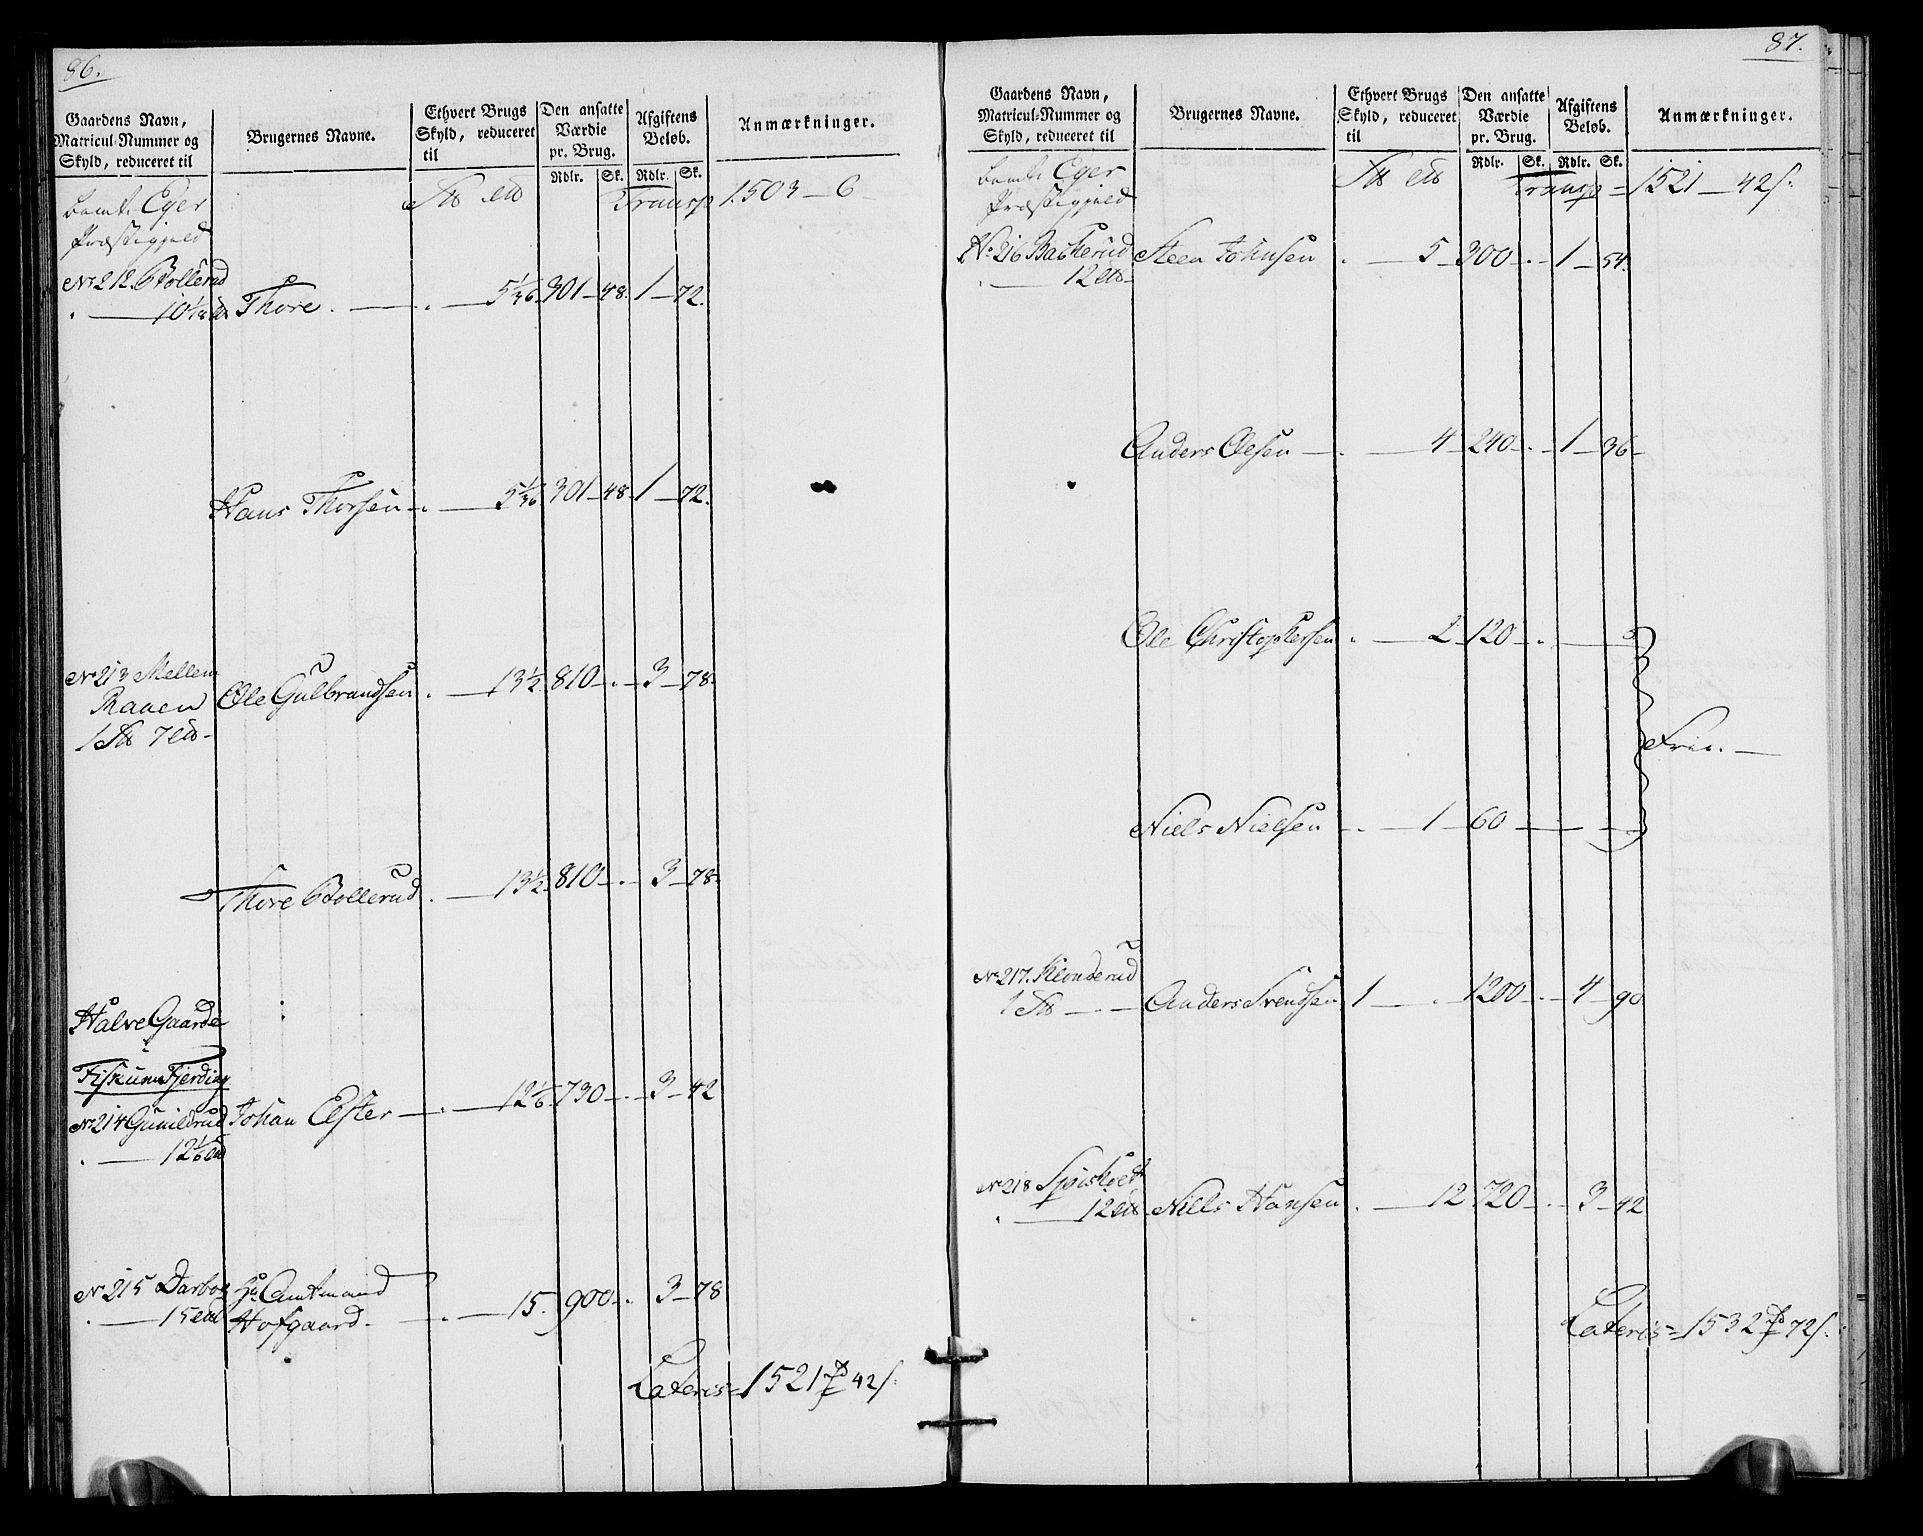 86.
Gaardens Navn,
Matricul-Nummer og
Skyld, reduceret til
Brugernes Navne.
Ethvert Brugs
Skyld, reduceret
til
Den ansatte
Værdie
pr. Brug.
Afgiftens
Beløb.
Anmærkninger.
Rdlr. Sk. Rdlr. Sk.
Eger
Præstegjeld
Transp 1503 — 6 —
No 212. Bollerud
10 1/18
Thore. — 5 1/36 301 — 48. 1 — 72.
Hans Thorsen — 5 1/36 301 — 48 1 — 72.
No 213 Mellem
Raaen
1 7
Ole Gulbrandsen — 13 1/2 810 — 3 — 78.
Thore Bollerud — 13 1/2 810 — 3 — 78.
Halve Gaarde
Fiskum Fjerding
No 214 Gunildrud
12 1/6
Johan Elster — 12 1/6 730 — 3 — 42
No 215 Darbo
15
Hr Amtmand
Hofgaard. — 15. 900 — 3 — 78
Lateris = 1521 42 s.
87.
Gaardens Navn,
Matricul-Nummer og
Skyld, reduceret til
Brugernes Navne.
Ethvert Brugs
Skyld, reduceret
til
Den ansatte
Værdie
pr. Brug.
Afgiftens
Beløb.
Anmærkninger.
Rdlr. Sk. Rdlr. Sk.
Eger
Præstegjeld
Transp = 1521 — 42 s.
No 216 Backerud
12
Steen Johnsen — 5 — 300 — 1 — 54.
Anders Olesen — 4 240 — 1 — 36 —
Ole Christophersen — 2 120 —
Frie. —
Niels Nielsen — 1 — 60 —
No 217. Klonderud
1
Anders Svendsen 1 — 1200 — 4 — 90
No 218
12
Niels Hansen — 12 720 — 3 — 42
Lateris = 1532 72 s.